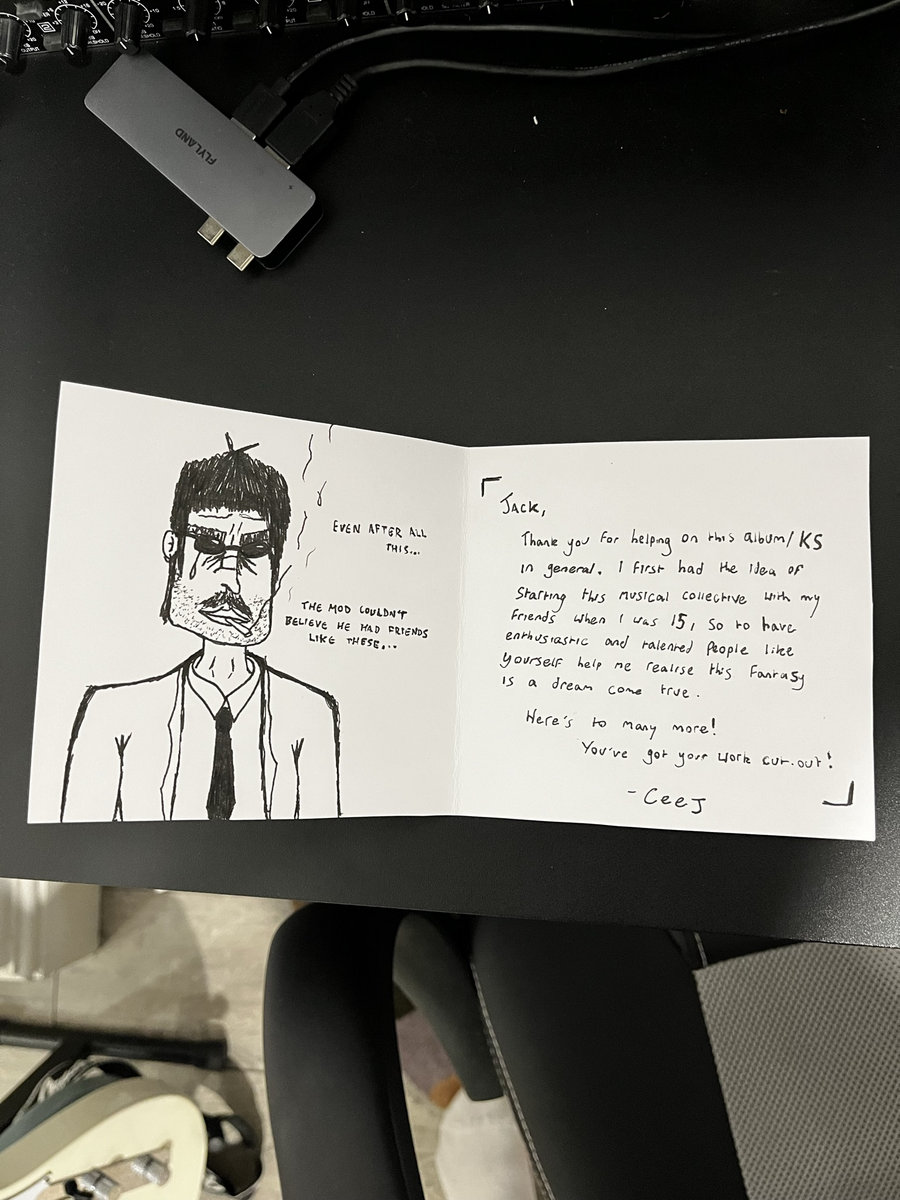 FLYLAND
EVEN AFTER ALL
THIS...
THE MOD COULDN'T
BELIEVE HE HAD FRIENDS
LIKE THESE...
Jack,
Thank you for helping on this album/KS
in general. I first had the idea of
starting this musical collective with my
friends when I was 15, so to have
enthusiastic and talented people like
yourself help me realise this fantasy
is a dream come true.
Here's to many more!
You've got your work cut-out!
- CeeJ